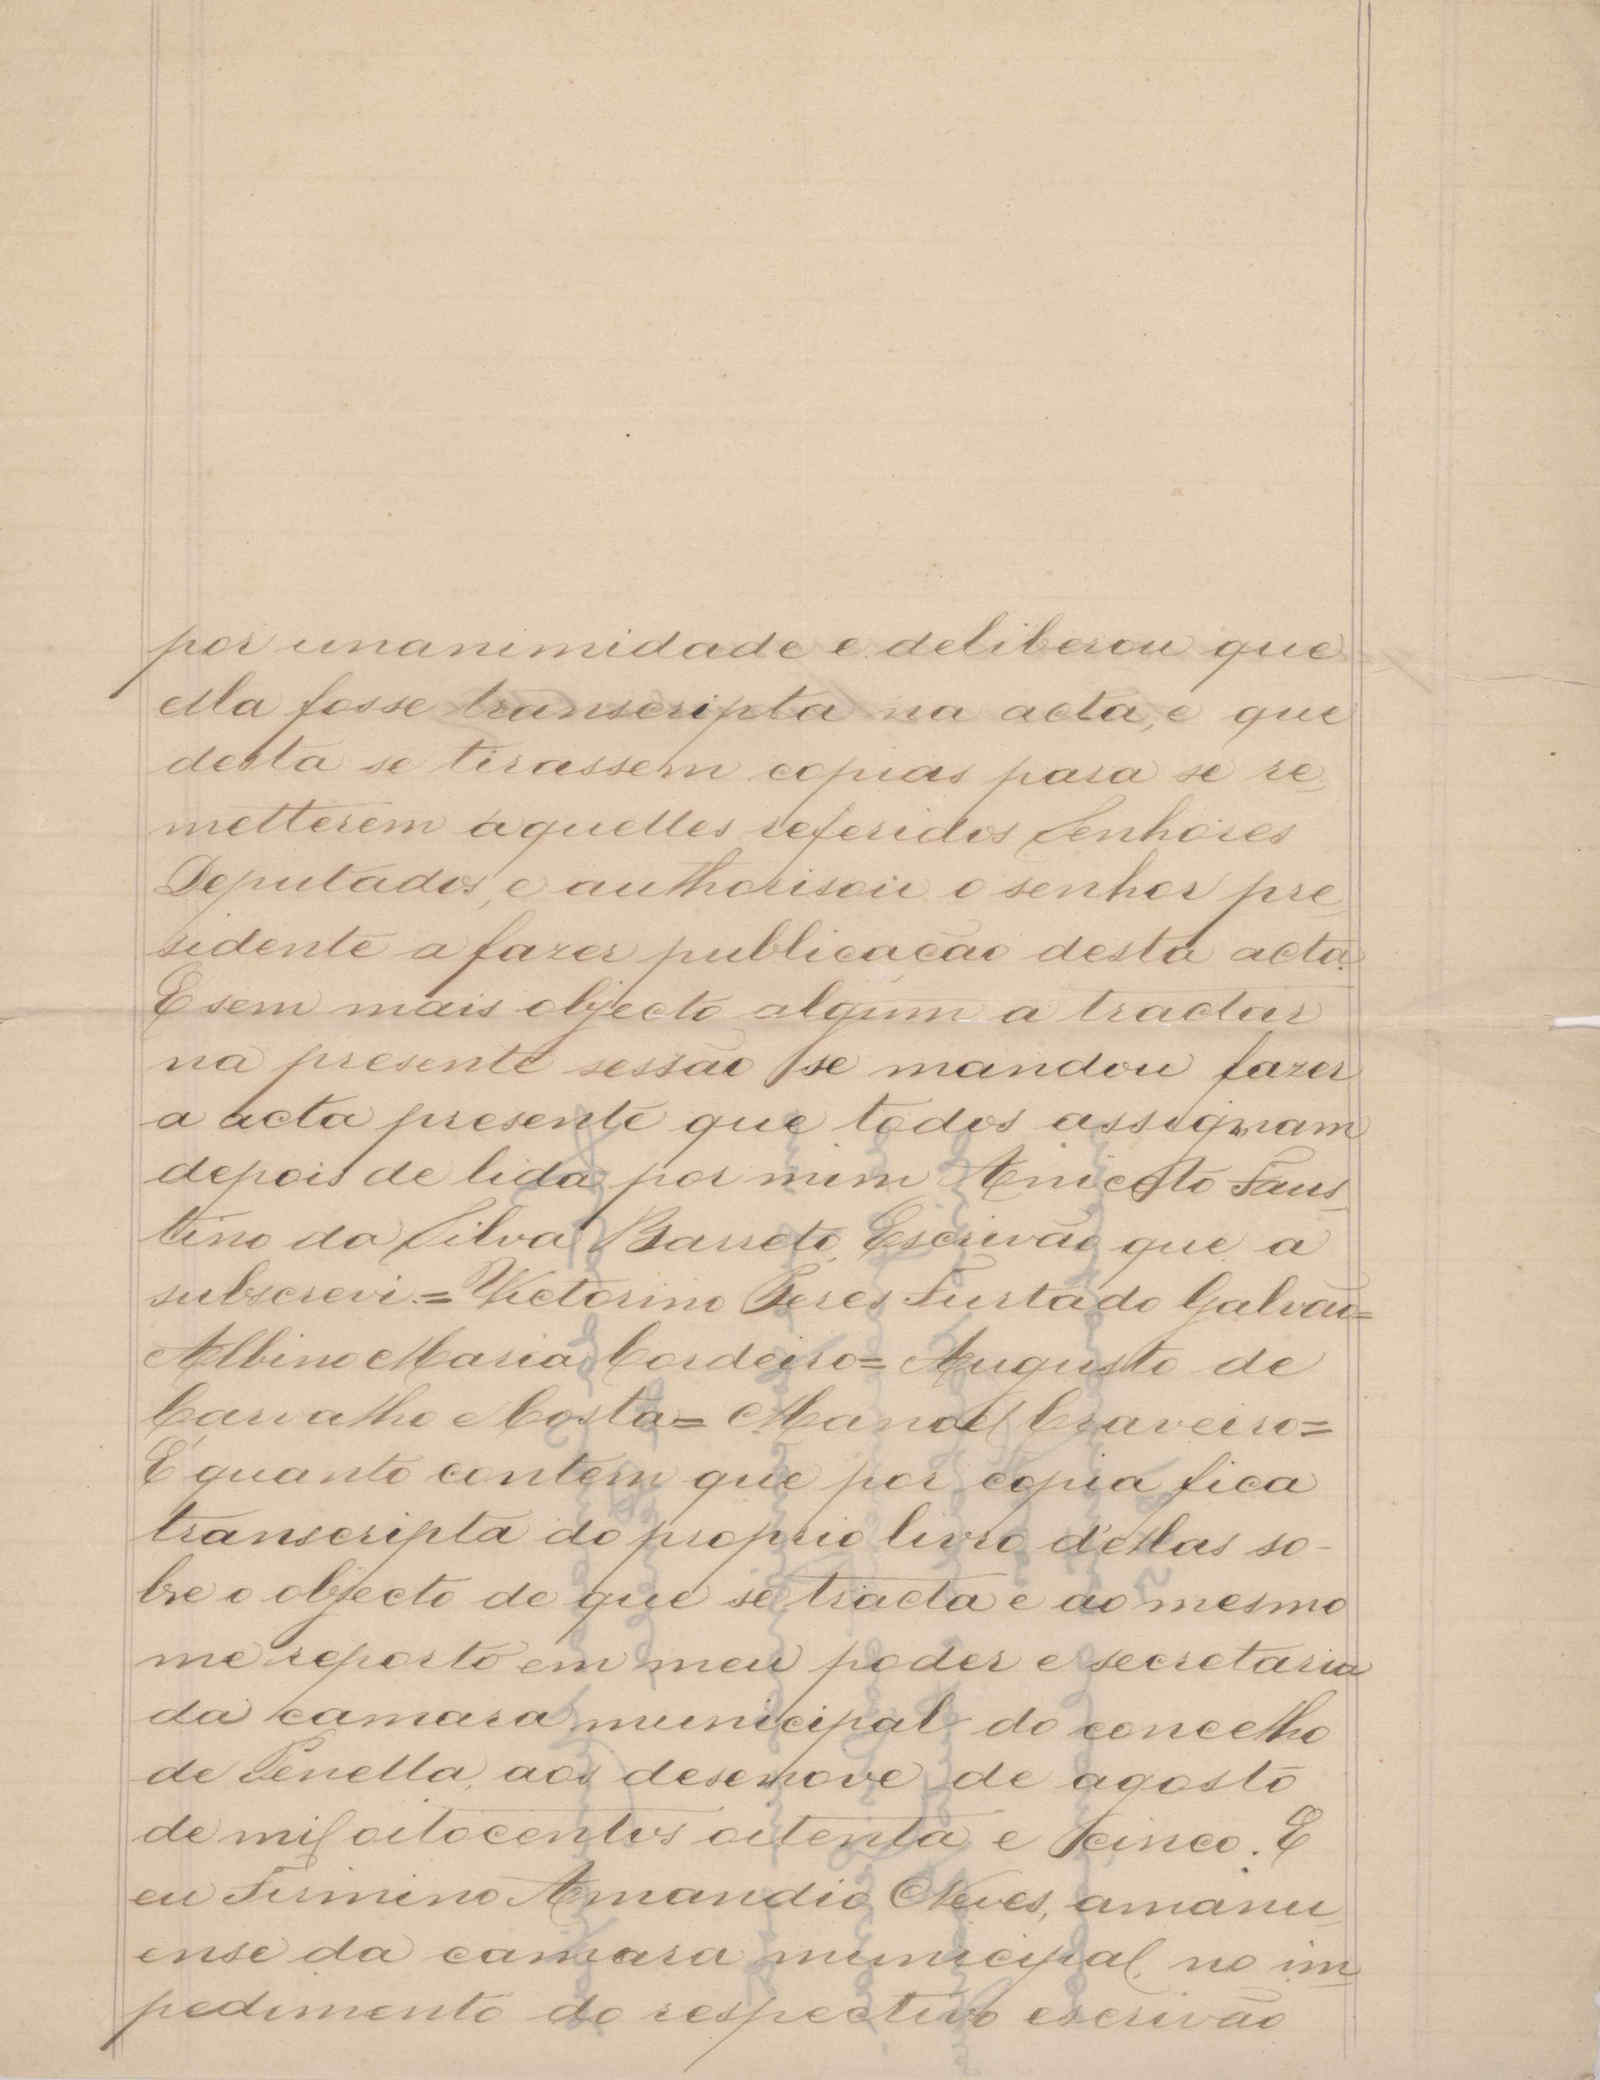 por unanimidade e deliberou que
ella fosse transcripta na acta, e que
desta se tirassem copias para se re-
metterem áquelles referidos Senhores
Deputados, e authorisou o senhor pre-
sidente a fazer publicação desta acta.
E sem mais objecto algum a tractar
na presente sessão se mandou fazer
a acta presente que todos assignam
depois de lida por mim Aniceto Faus-
tino da Silva Barreto, Escrivão que a
subscrevi = Victorino Peres Furtado Galvão =
Albino Maria Cordeiro = Augusto de
Carvalho e Costa = Manoel Craveiro =
E' quanto contém que por copia fica
transcripta do proprio livro d'ellas so-
bre o objecto de que se tracta e ao mesmo
me reporto em meu poder e secretaria
da camara municipal do concelho
de Penella, aos desenove de agosto
de mil oitocentos oitenta e cinco. E
eu Firmino Amandio Neves, amanu-
ense da camara municipal, no im-
pedimento do respectivo escrivão